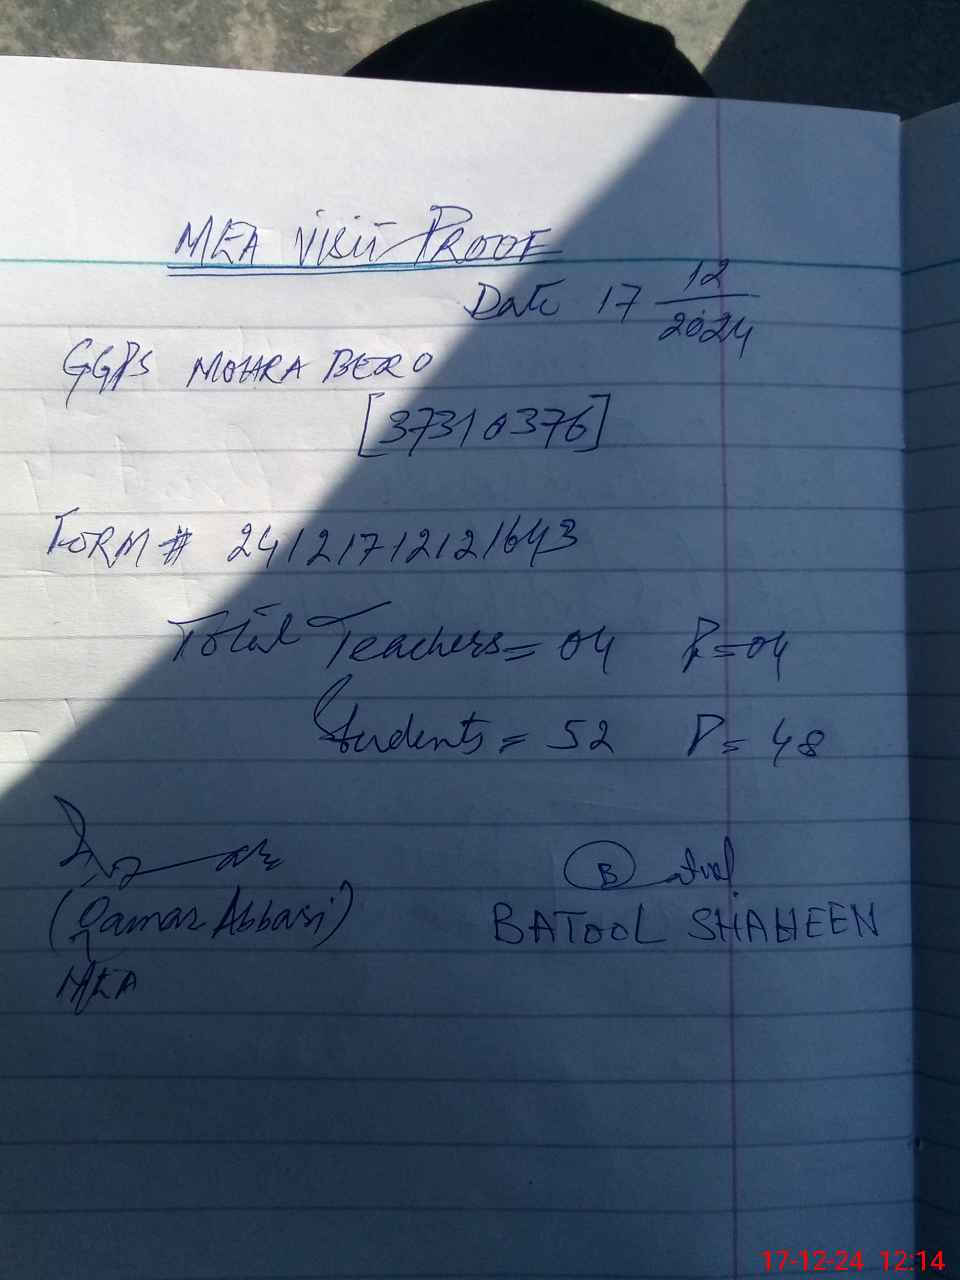 MEA Visit Proof
Date 17 12/2024
GGPS MOHRA BERO
[37310376]
FORM # 24121712121643
Total Teachers = 04 P = 04
Students = 52 P = 48
(Qamar Abbasi)
BATOOL SHAHEEN
MEA
17-12-24 12:14